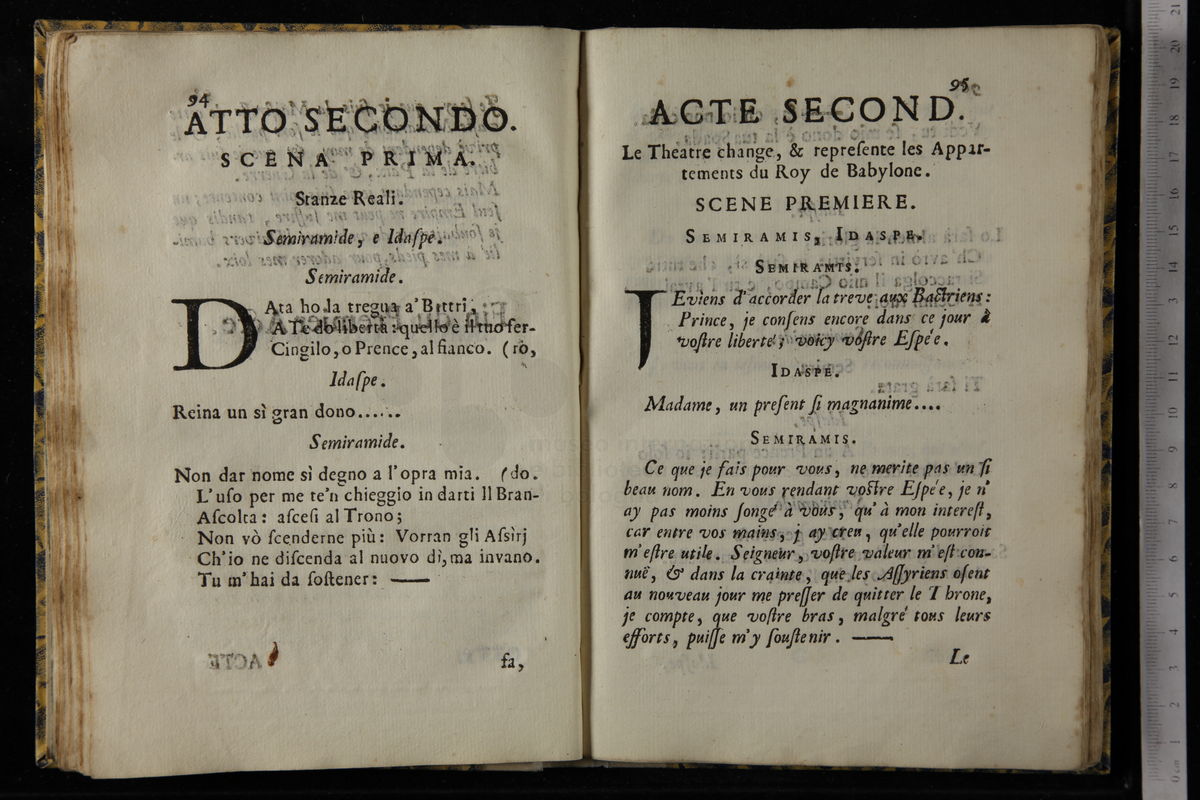 94
ATTO SECONDO.
SCENA PRIMA.
Stanze Reali.
Semiramide, e Idaſpe.
Semiramide.
DAta ho la tregua a' Battri,
A Te do libertà: quello è il tuo fer-
Cingilo, o Prence, al fianco. (ro,
Idaſpe.
Reina un sì gran dono......
Semiramide.
Non dar nome sì degno a l'opra mia. (do.
L'uſo per me te'n chieggio in darti Il Bran-
Aſcolta: aſceſi al Trono;
Non vò ſcenderne più: Vorran gli Aſsìrj
Ch'io ne diſcenda al nuovo dì, ma invano.
Tu m'hai da ſoſtener: ——
ſa,
95
ACTE SECOND.
Le Theatre change, & repreſente les Appar-
tements du Roy de Babylone.
SCENE PREMIERE.
SEMIRAMIS, IDASPE.
SEMIRAMIS.
JEviens d'accorder la treve aux Bactriens:
Prince, je conſens encore dans ce jour à
voſtre liberté; voicy voſtre Eſpée.
IDASPE.
Madame, un preſent ſi magnanime....
SEMIRAMIS.
Ce que je fais pour vous, ne merite pas un ſi
beau nom. En vous rendant voſtre Eſpée, je n'
ay pas moins ſongé à vous, qu'à mon intereſt,
car entre vos mains, j ay creu, qu'elle pourroit
m'eſtre utile. Seigneur, voſtre valeur m'eſt con-
nuë, & dans la crainte, que les Aſſyriens oſent
au nouveau jour me preſſer de quitter le Throne,
je compte, que voſtre bras, malgré tous leurs
efforts, puiſſe m'y ſouſtenir. ——
Le